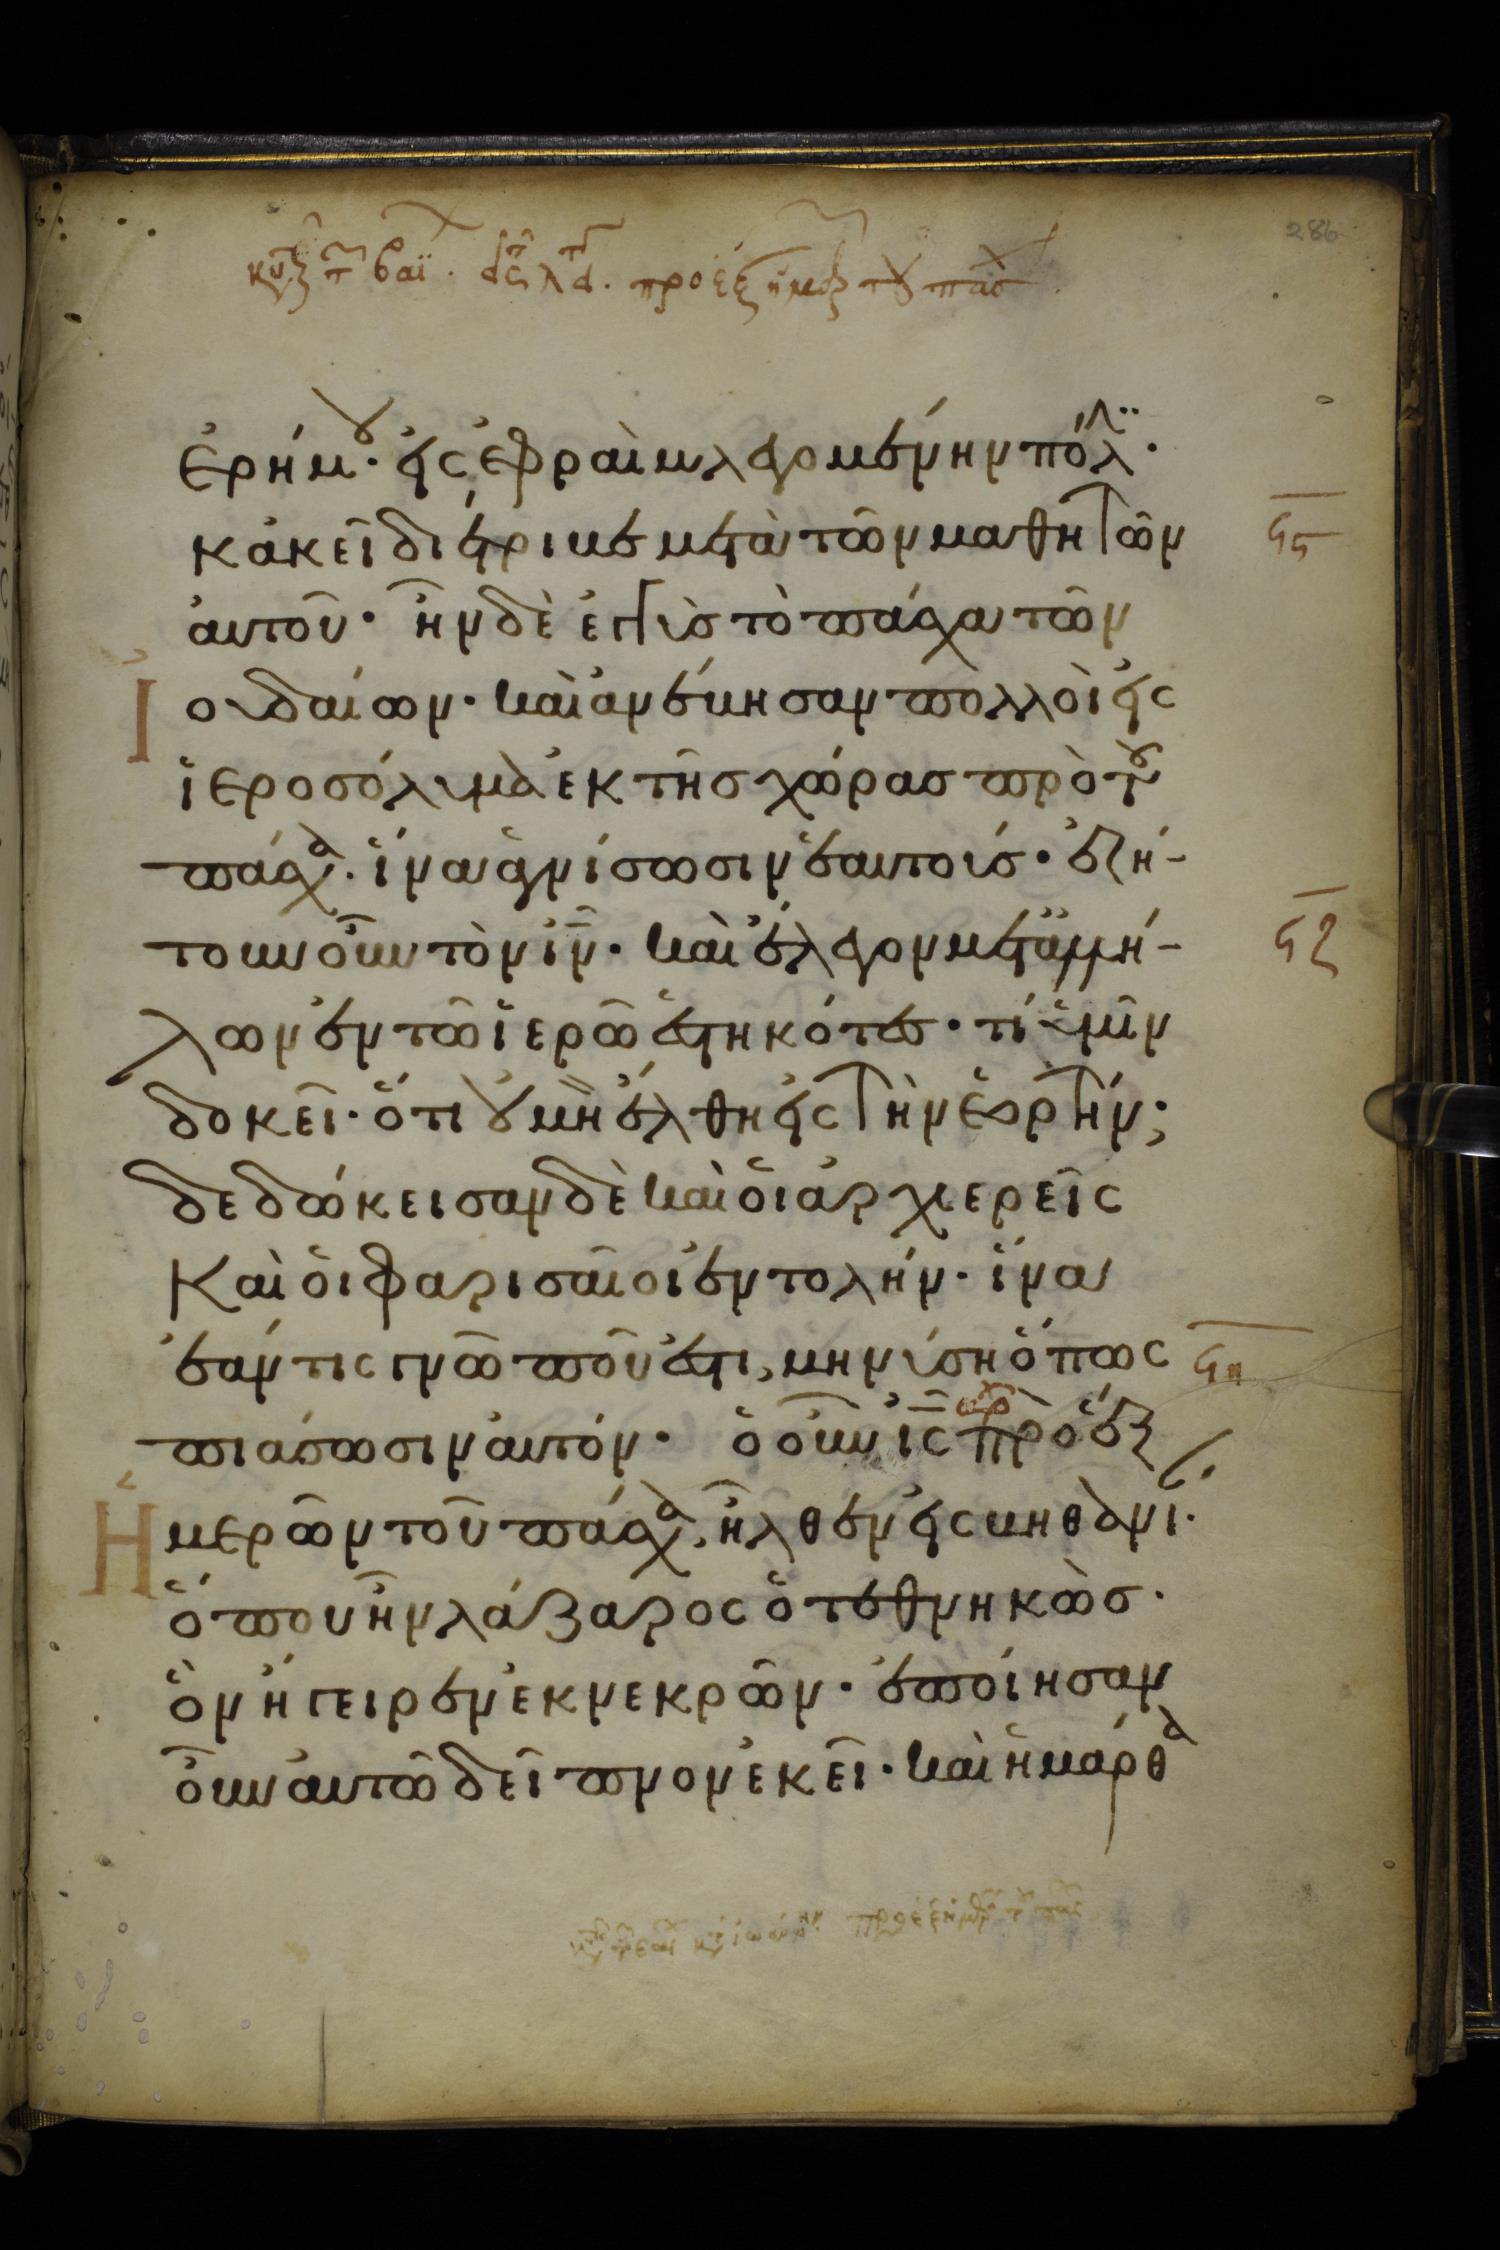 ἐρήμου· εἰς ἐφραὶμ λεγομένην πόλιν·
κἀκεῖ διέτριβε μετὰ τῶν μαθητῶν
αὐτοῦ· ἦν δὲ ἐγγὺς τὸ πάσχα τῶν
Ἰουδαίων· καὶ ἀνέβησαν πολλοὶ εἰς
ἱεροσόλυμα ἐκ τῆς χώρας πρὸ τοῦ
πάσχα. ἵνα ἁγνίσωσιν ἑαυτούς· ἐζή-
τουν οὖν τὸν ἰν· καὶ ἔλεγον μετ' ἀλλή-
λων ἐν τῷ ἱερῷ ἑστηκότες· τί ὑμῖν
δοκεῖ· ὅτι οὐ μὴ ἔλθη εἰς τὴν ἑορτήν;
δεδώκεισαν δὲ καὶ οἱ ἀρχιερεῖς
καὶ οἱ φαρισαῖοι ἐντολήν· ἵνα
ἐάν τις γνῶ ποῦ ἐστι, μηνύση ὅπως
πιάσωσιν αὐτόν· ὁ οὖν ἰς πρὸ ἓξ
Ἡμερῶν τοῦ πάσχα, ἦλθεν εἰς βηθανί·
ὅπου ἦν λάζαρος ὁ τεθνηκὼς·
ὃν ἤγειρεν ἐκ νεκρῶν· ἐποίησαν
οὖν αὐτῶ δεῖπνον ἐκεῖ· καὶ ἡ μάρθα